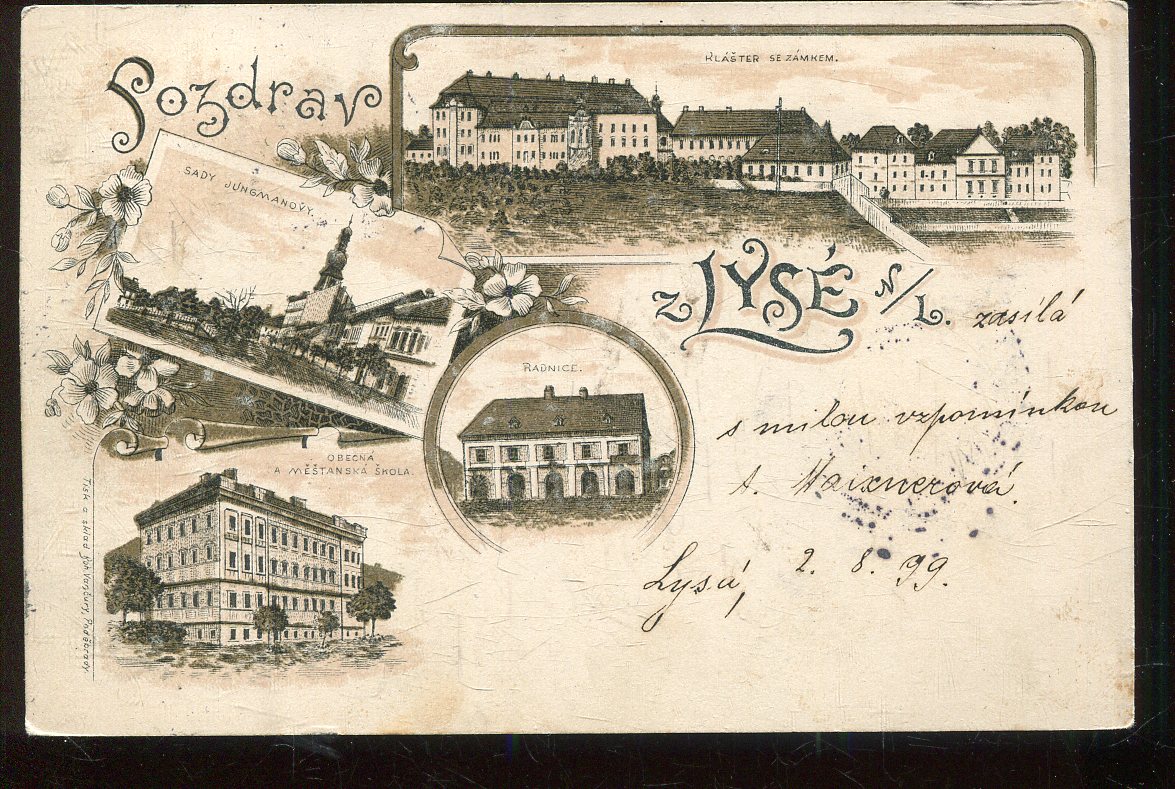 Pozdrav
KLÁŠTER SE ZÁMKEM.
SADY JUNGMANOVY.
z LYSÉ N/L.
zasílá
s milou vzpomínkou
A. Maixnerová.
Lysá, 2. 8. 99.
RADNICE.
OBECNÁ
A MĚŠŤANSKÁ ŠKOLA.
Tisk a sklad Poděbrady